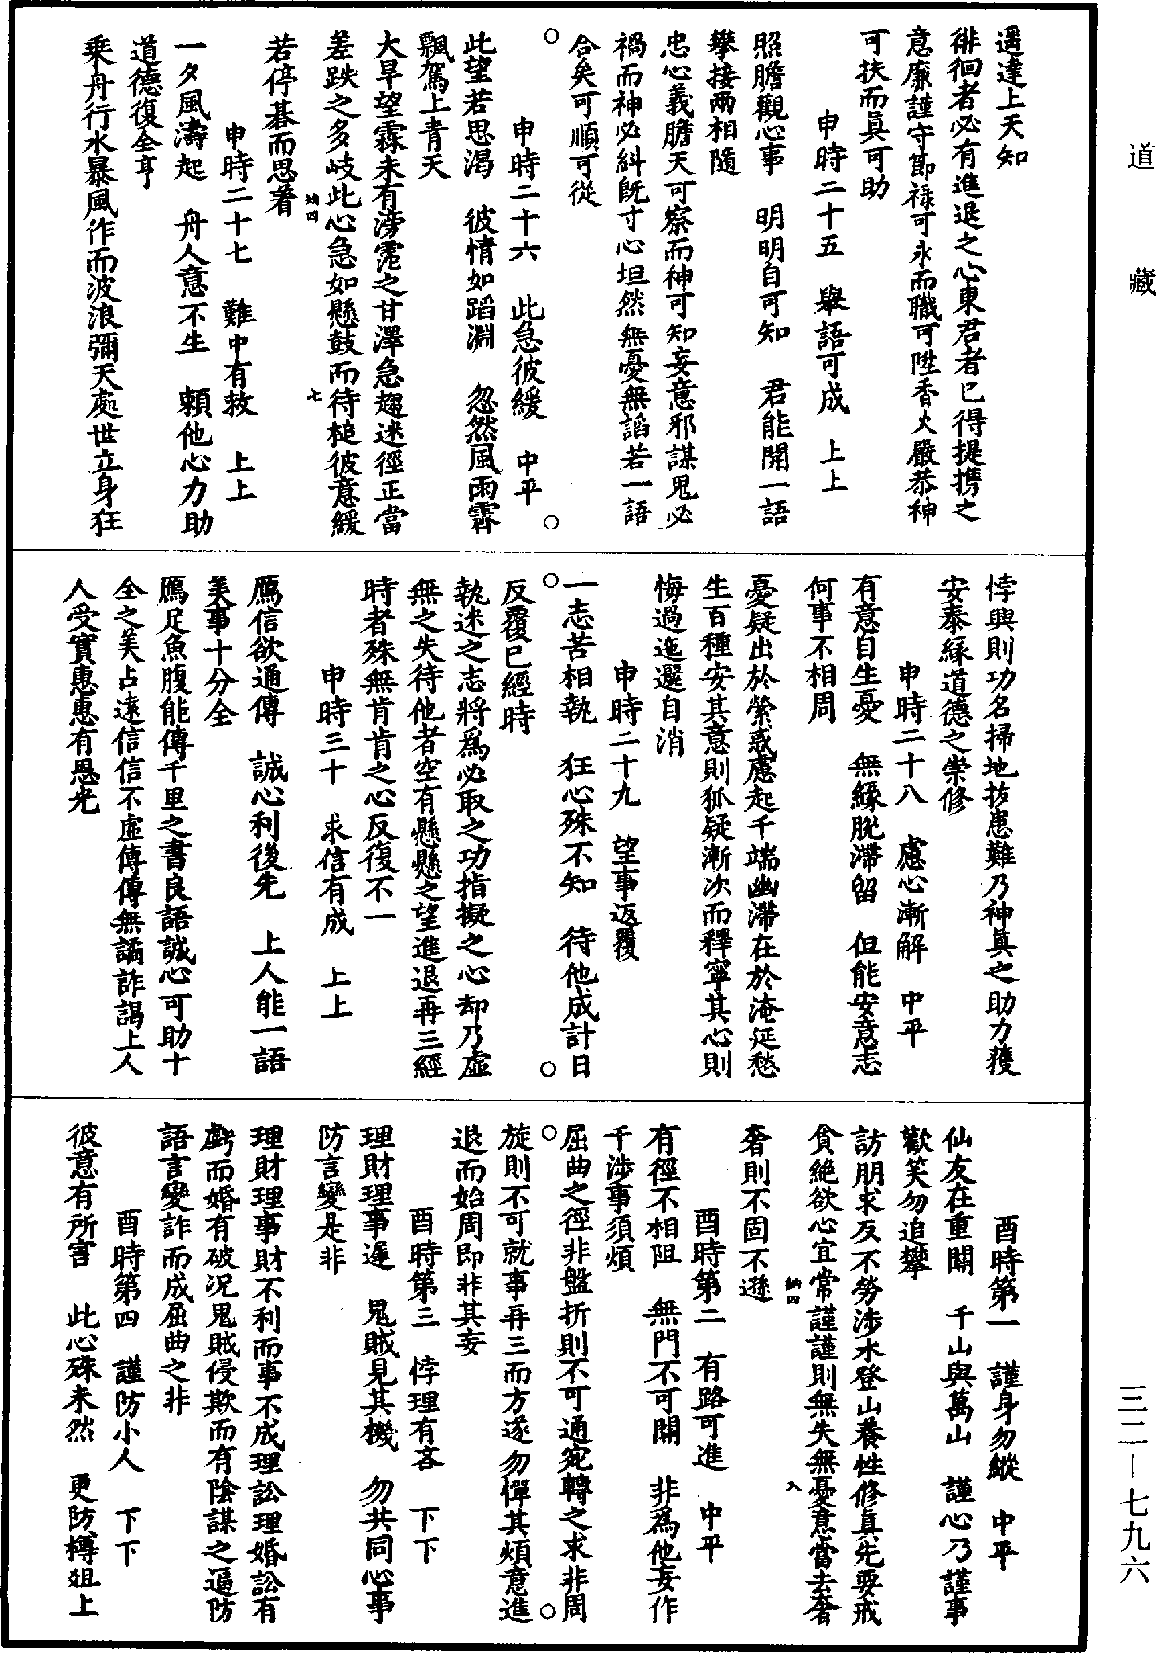 道藏
遇達上天知
徘徊者必有進退之心東君者已得提携之
意廉謹守節祿可永而職可陞香火嚴恭神
可扶而眞可助
申時二十五　舉語可成　上上
照膽觀心事　明明自可知　君能開一語
攀接兩相隨
忠心義膽天可察而神可知妄意邪謀鬼必
禍而神必糾旣寸心坦然無憂無謟若一語
合矣可順可從
申時二十六　此急彼緩　中平
此望若思渴　彼情如蹈淵　忽然風雨霽
飄駕上青天
大旱望霖未有滂霑之甘澤急趨迷徑正當
差跌之多岐此心急如懸鼓而待槌彼意緩
若停碁而思著
納四　七
申時二十七　難中有救　上上
一夕風濤起　舟人意不生　賴他心力助
道德復全亨
乘舟行水暴風作而波浪彌天處世立身狂
悖興則功名掃地扶患難乃神眞之助力獲
安泰緣道德之崇修
申時二十八　慮心漸解　中平
有意自生憂　無緣脫滯留　但能安意志
何事不相周
憂疑出於縈惑慮起千端幽滯在於淹延愁
生百種安其意則狐疑漸次而釋寧其心則
悔過迤邐自消
申時二十九　望事返覆
一志苦相執　狂心殊不知　待他成計日
反覆已經時
執迷之志將爲必取之功指擬之心却乃虛
無之失待他者空有懸懸之望進退再三經
時者殊無肯肯之心反復不一
申時三十　求信有成　上上
鴈信欲通傳　誠心利後先　上人能一語
美事十分全
鴈足魚腹能傳千里之書良語誠心可助十
全之美占遠信信不虛傳傳無譎詐謁上人
人受實惠惠有恩光
酉時第一　謹身勿縱　中平
仙友在重關　千山與萬山　謹心乃謹事
歡笑勿追攀
訪朋求友不勞涉水登山養性修眞先要戒
貪絕欲心宜常謹謹則無失無憂意當去奢
奢則不固不遜
納四　八
酉時第二　有路可進　中平
有徑不相阻　無門不可關　非爲他妄作
干涉事須煩
屈曲之徑非盤折則不可通宛轉之求非周
旋則不可就事再三而方遂勿憚其煩意進
退而始周即非其妄
酉時第三　悖理有吝　下下
理財理事遲　鬼賊見其機　勿共同心事
防言變是非
理財理事財不利而事不成理訟理婚訟有
虧而婚有破況鬼賊侵欺而有陰謀之逼防
語言變詐而成屈曲之非
酉時第四　謹防小人　下下
彼意有所害　此心殊未然　更防樽俎上
三二—七九六